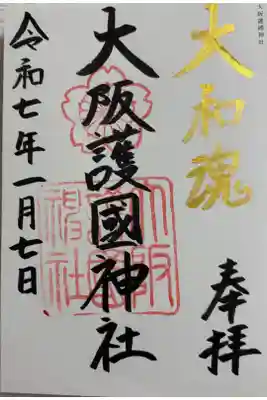 大阪護國神社
大和魂
奉拝
大阪護國神社
令和七年一月七日